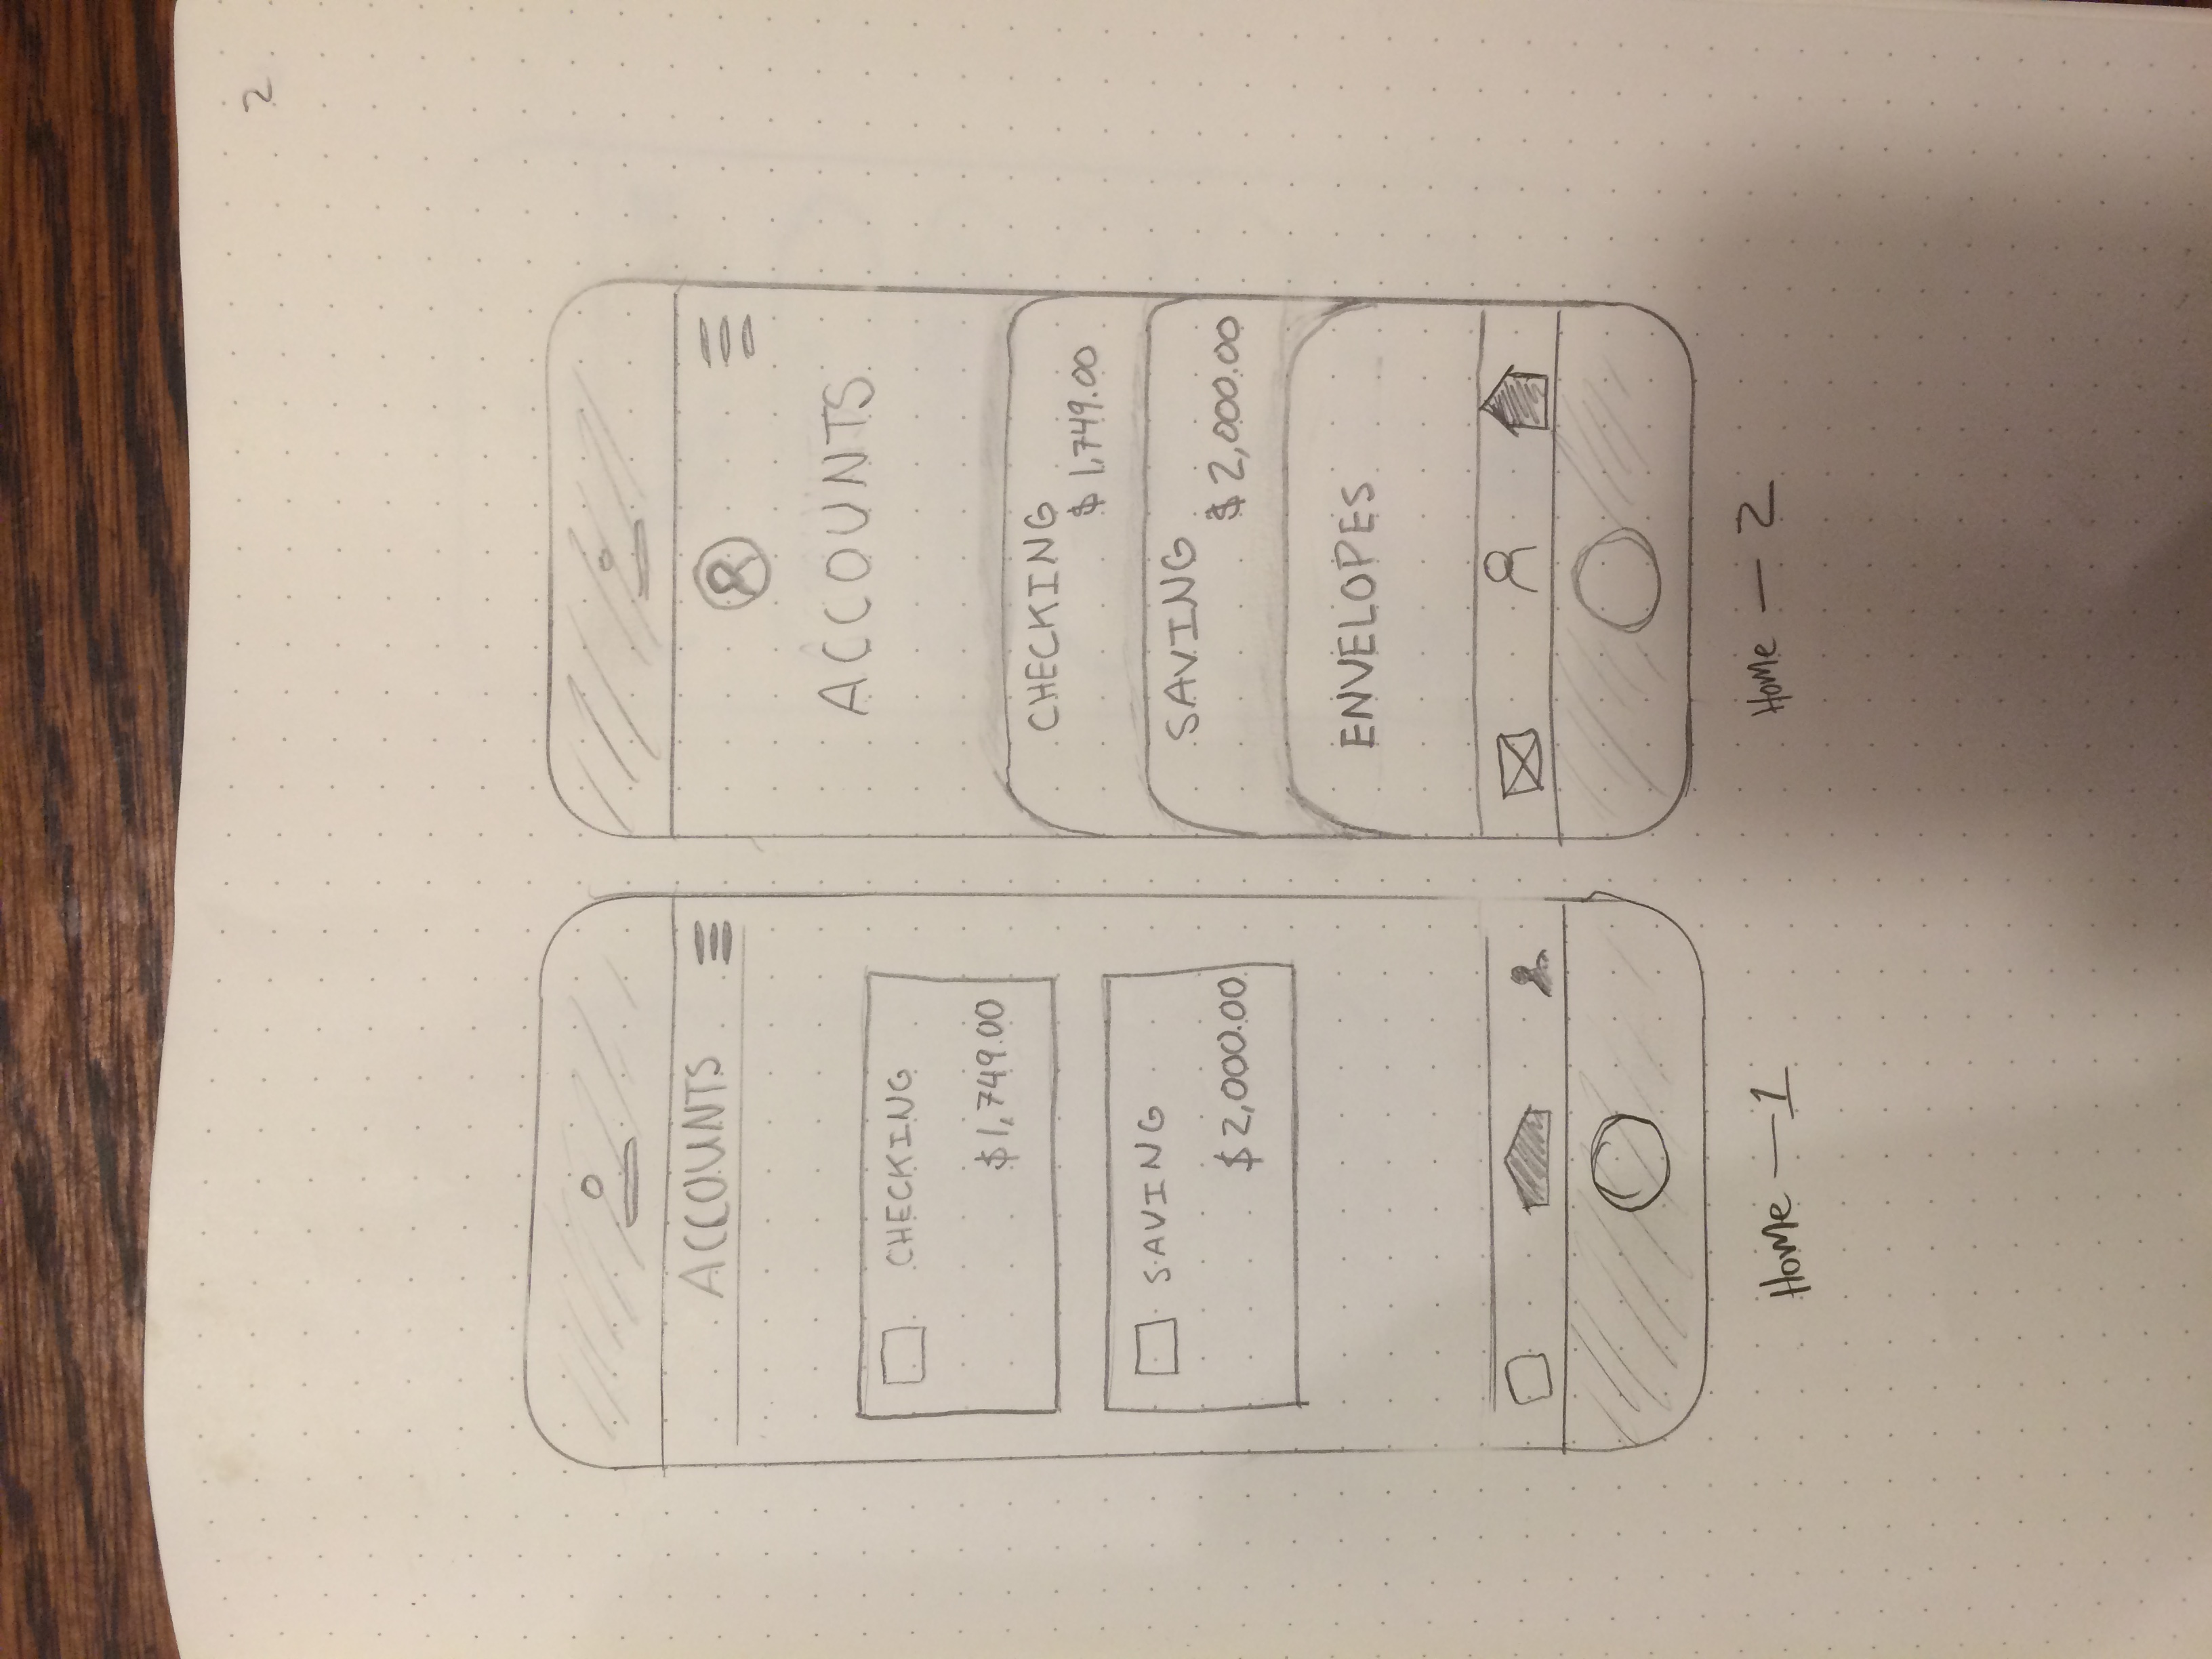 2
ACCOUNTS
CHECKING
$1,749.00
SAVING
$2,000.00
Home — 1
ACCOUNTS
CHECKING
$1,749.00
SAVING
$2,000.00
ENVELOPES
Home — 2